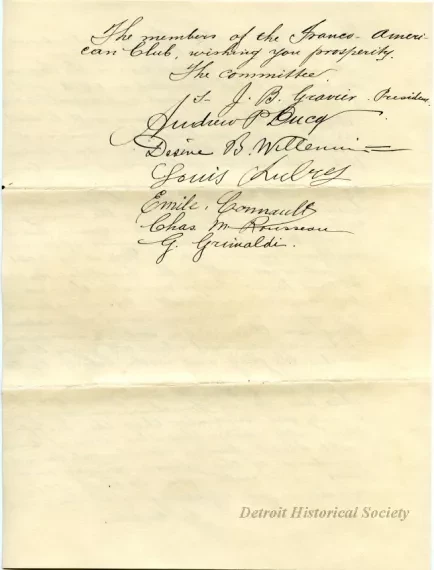 The members of the Franco-Ameri-
can Club, wishing you prosperity.
The committee
J. B. Gravier. President
Andrew P Ducq
Desire B. Willemin
Louis
Emile.
Chas M Rousseau
G. Grimaldi.
Detroit Historical Society